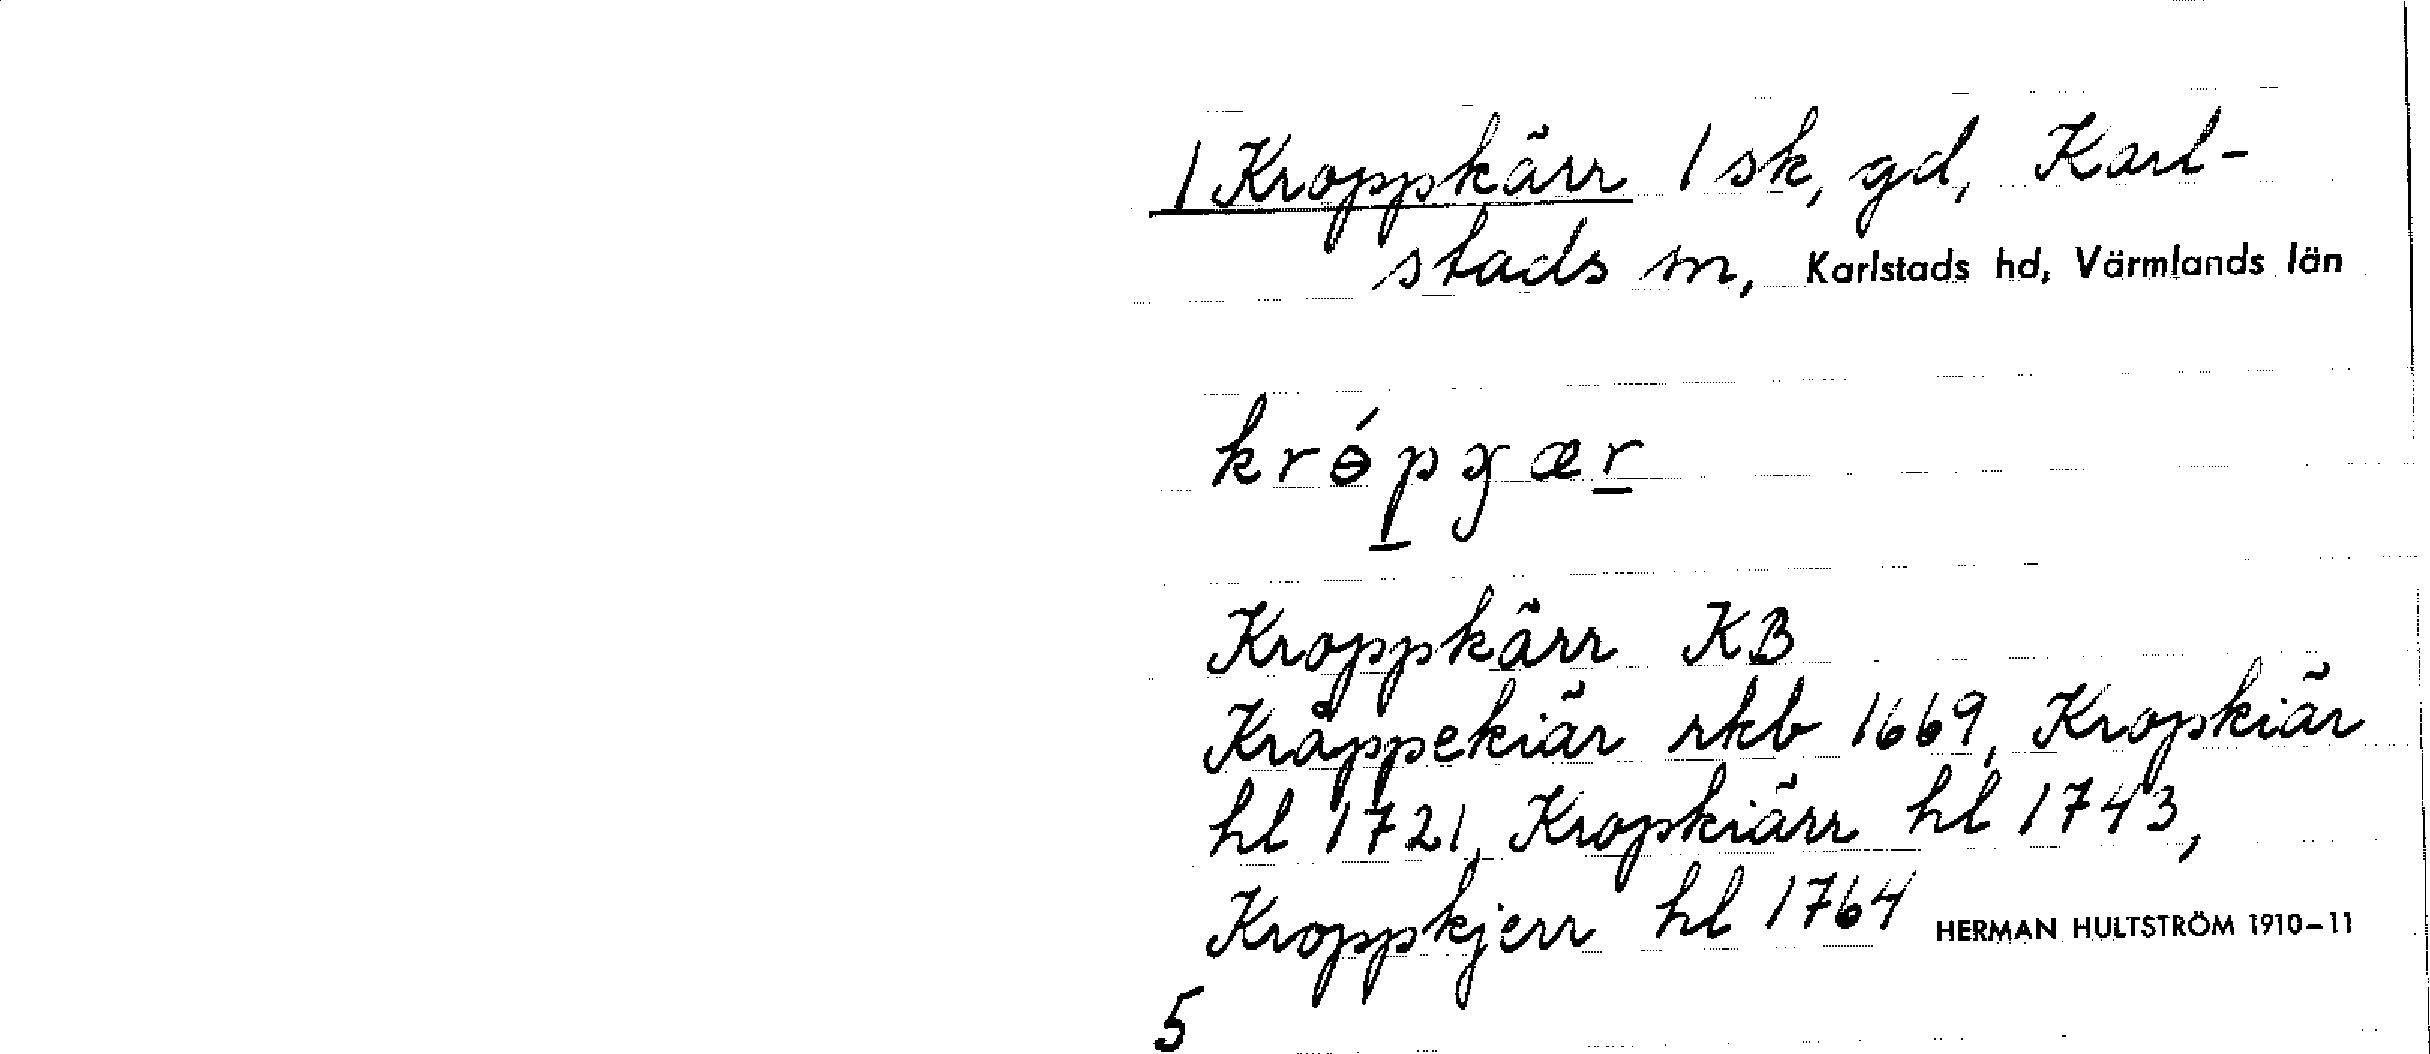 1 Kroppkärr 1 sk, gd, Karl-
stads m, Karlstads hd, Värmlands län
krɵ́pɡær
Kroppkärr KB
Kråppekiär rkb 1669, Kropkiär
hl 1721, Kropkiärr hl 1743,
Kroppkjerr hl 1764 HERMAN HULTSTRÖM 1910–11
5